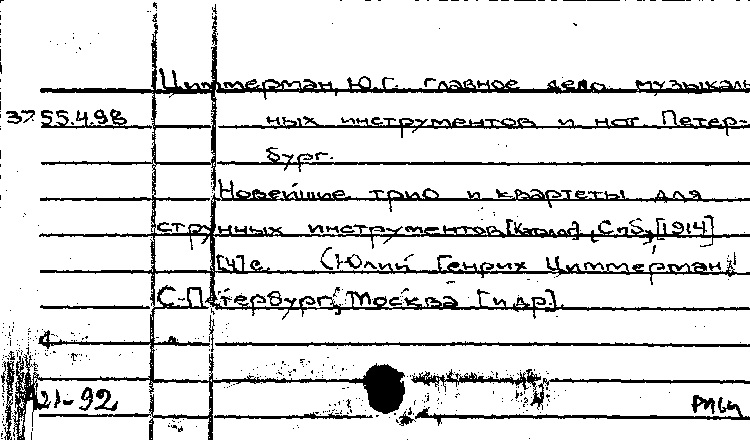 Циммерман, Ю.Г. главное депо музыкаль
37.55.4.98 ных инструментов и нот. Петер-
бург.
Новейшие трио и квартеты для
струнных инструментов [Каталог]. СПб, [1914]
[4] с. (Юлий Генрих Циммерман,
С-Петербург, Москва [и др].
21-92